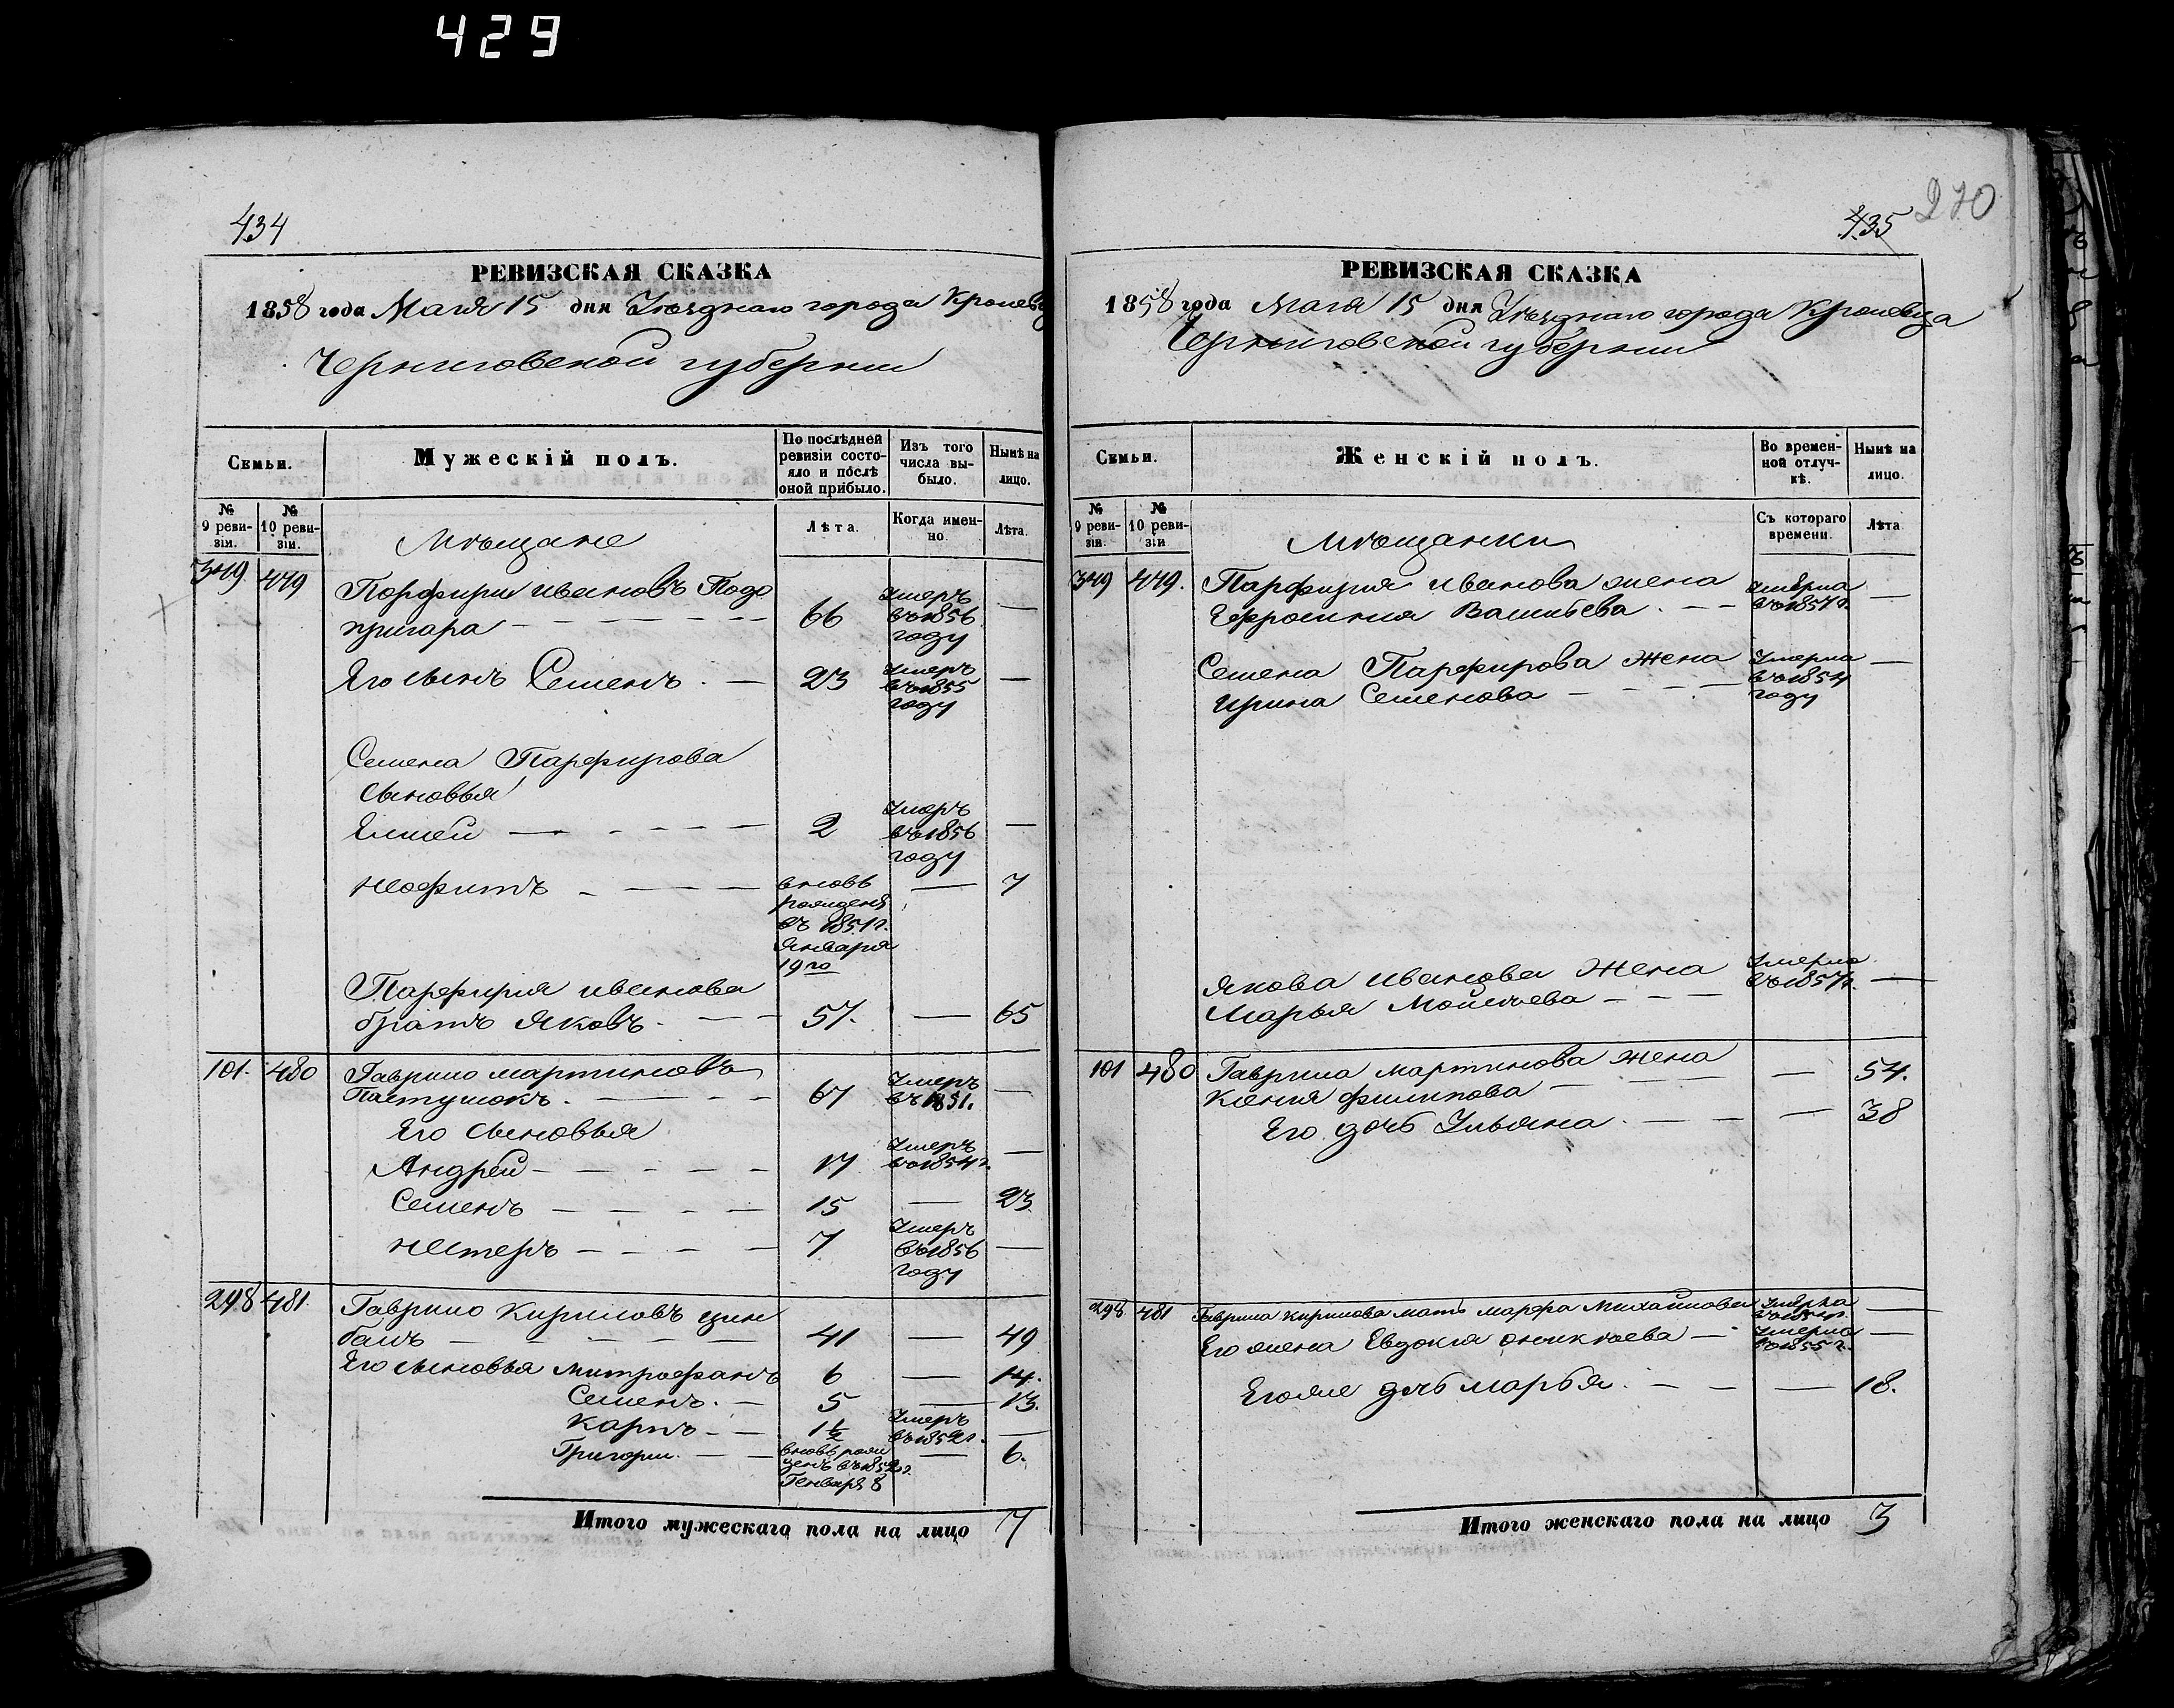 429
434
РЕВИЗСКАЯ СКАЗКА
1858 года Маія 15 дня Уѣзднаго города Кролевца
Черниговской губерніи
Семьи.
Мужескій полъ.
По послѣдней ревизіи состояло и послѣ оной прибыло.
Изъ того числа выбыло.
Нынѣ на лицо.
№ 9 ревизіи.
№ 10 ревизіи.
Мѣщане
Лѣта.
Когда именно.
Лѣта.
349 479 Порфирій Ивановъ Подо
пригара — 66 Умеръ въ 1856 году —
Его сынъ Семенъ. — 23 Умеръ въ 1855 году —
Семена Парфирова
сыновья
Елисей — 2 Умеръ въ 1856 году —
Неофитъ — вновь рожденъ въ 1851 г. Января 19го — 7
Парфирія Иванова
братъ Яковъ. — 57. — 65
101. 480 Гаврило Мартиновъ
Пастушокъ. — 67 Умеръ въ 1851. —
Его сыновья
Андрей — 17 Умеръ въ 1854 г. —
Семенъ — 15 — 23
Нестеръ — 7 Умеръ въ 1856 году —
298 481. Гаврило Кириловъ Цим
балъ — 41 — 49
Его сыновья Митрофанъ 6 — 14.
Семенъ. — 5 — 13.
Карпъ — 1½ Умеръ въ 1852 г. —
Григорій. — вновь рожденъ въ 1852 г. Генваря 8 — 6.
Итого мужескаго пола на лицо 7
435
270
РЕВИЗСКАЯ СКАЗКА
1858 года Маія 15 дня Уѣзднаго города Кролевца
Черниговской губерніи
Семьи.
Женскій полъ.
Во временной отлучкѣ.
Нынѣ на лицо.
№ 9 ревизіи.
№ 10 ревизіи
Мѣщанки
Съ котораго времени.
Лѣта.
349 479. Парфирія Иванова жена Умерла въ 1857 г. —
Ефросинія Васильева. —
Семена Парфирова жена Умерла въ 1854 году —
Ирина Семенова —
Якова Иванова жена Умерла въ 1857 г. —
Марья Моисѣева —
101 480 Гаврила Мартинова жена — 54.
Ксенія Филипова —
Его дочь Ульяна. — 38
298 481 Гаврила Кирилова мать Марфа Михайлова Умерла —
Его жена Евдокія — Умерла въ 1855 г. —
Егоже дочь Марья. — 18.
Итого женскаго пола на лицо 3